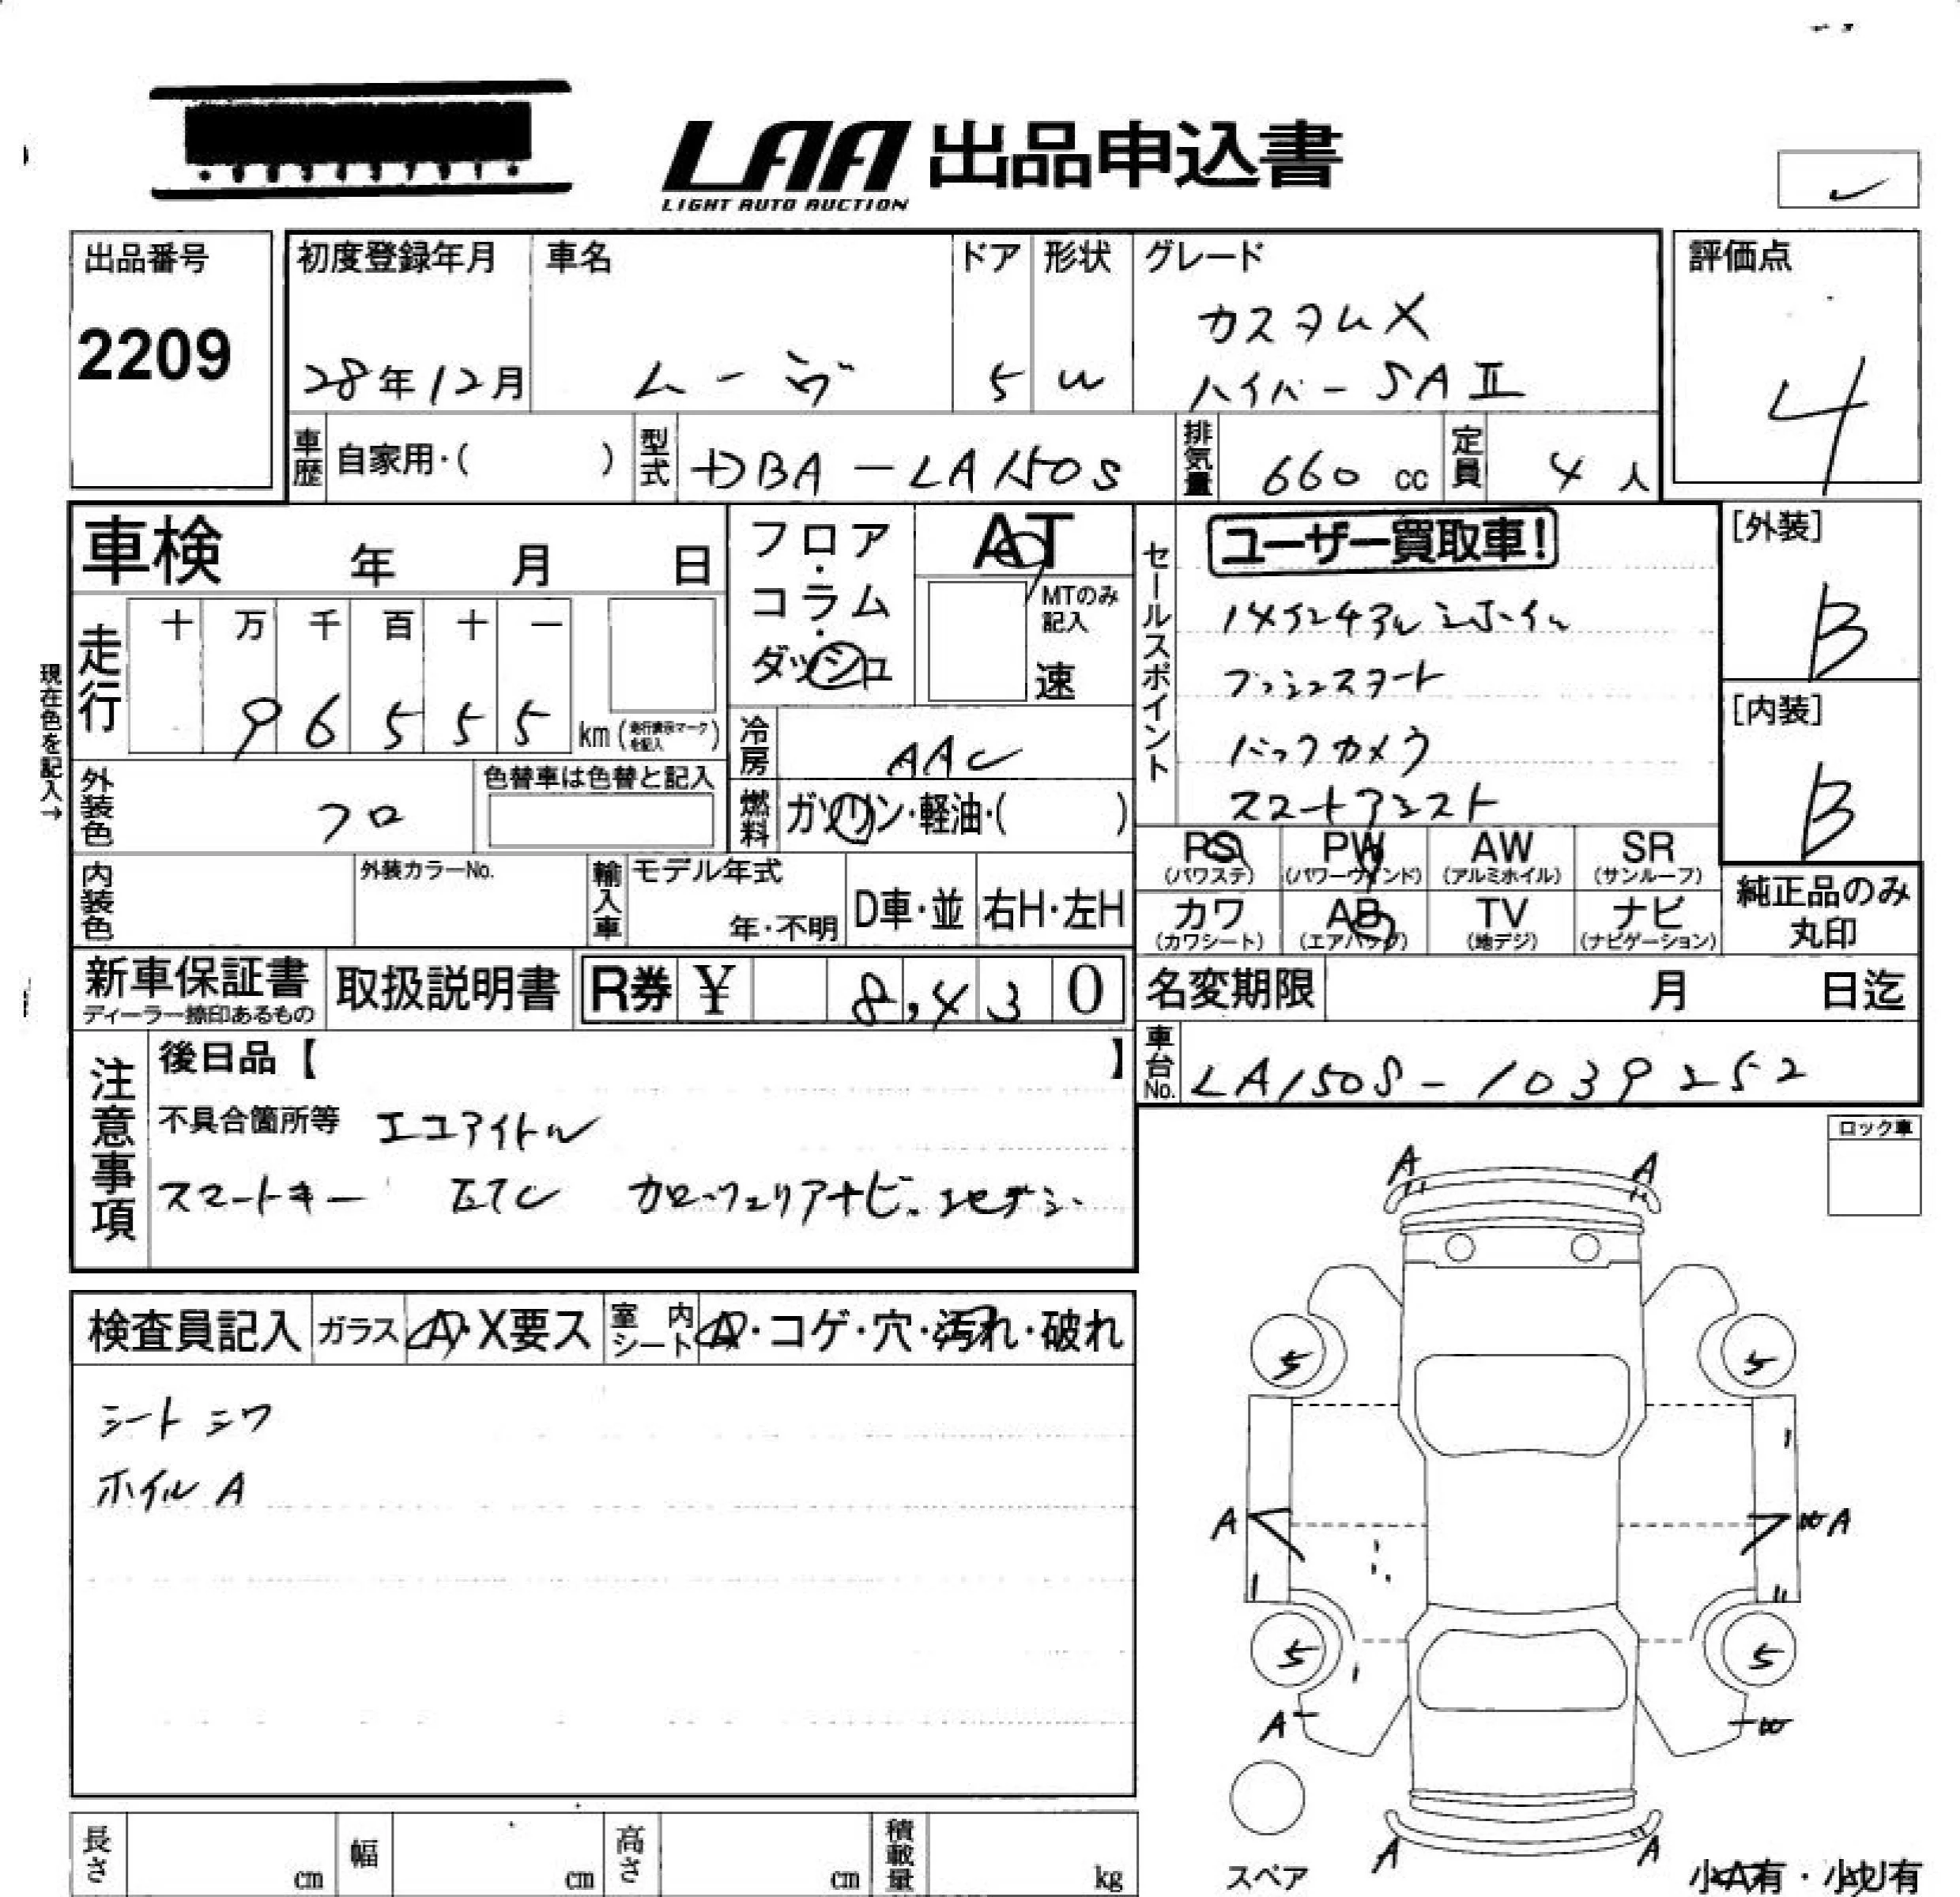 LAA 出品申込書
LIGHT AUTO AUCTION
出品番号
2209
初度登録年月 車名 ドア 形状 グレード
28年12月 ムーヴ 5 W カスタムX
ハイパーSAⅡ
評価点
4
車歴 自家用・( ) 型式 DBA-LA150S 排気量 660 cc 定員 4 人
車検 年 月 日
フロア・コラム・ダッシュ
AT
MTのみ記入
速
走行
十 万 千 百 十 一
9 6 5 5 5 km
現在色を記入→
冷房 AAC
外装色 クロ 色替車は色替と記入
燃料 ガソリン・軽油・( )
内装色 外装カラーNo. 輸入車 モデル年式 年・不明 D車・並 右H・左H
セールスポイント
ユーザー買取車!
14インチアルミホイル
プッシュスタート
バックカメラ
スマートアシスト
[外装]
B
[内装]
B
PS (パワステ) PW (パワーウインド) AW (アルミホイル) SR (サンルーフ)
カワ (カワシート) AB (エアバッグ) TV (地デジ) ナビ (ナビゲーション)
純正品のみ
丸印
新車保証書 取扱説明書 R券 ¥ 8,430
ディーラー捺印あるもの
名変期限 月 日迄
車台No. LA150S-1039252
注意事項
後日品【 】
不具合箇所等 エコアイドル
スマートキー ETC カロッツェリアナビ
ロック車
検査員記入 ガラス A・X要ス 室内シート A・コゲ・穴・汚れ・破れ
シートシワ
ホイルA
A A
5 5
A WA
5 5
A W
A A
スペア
小A有・小U有
長さ cm 幅 cm 高さ cm 積載量 kg